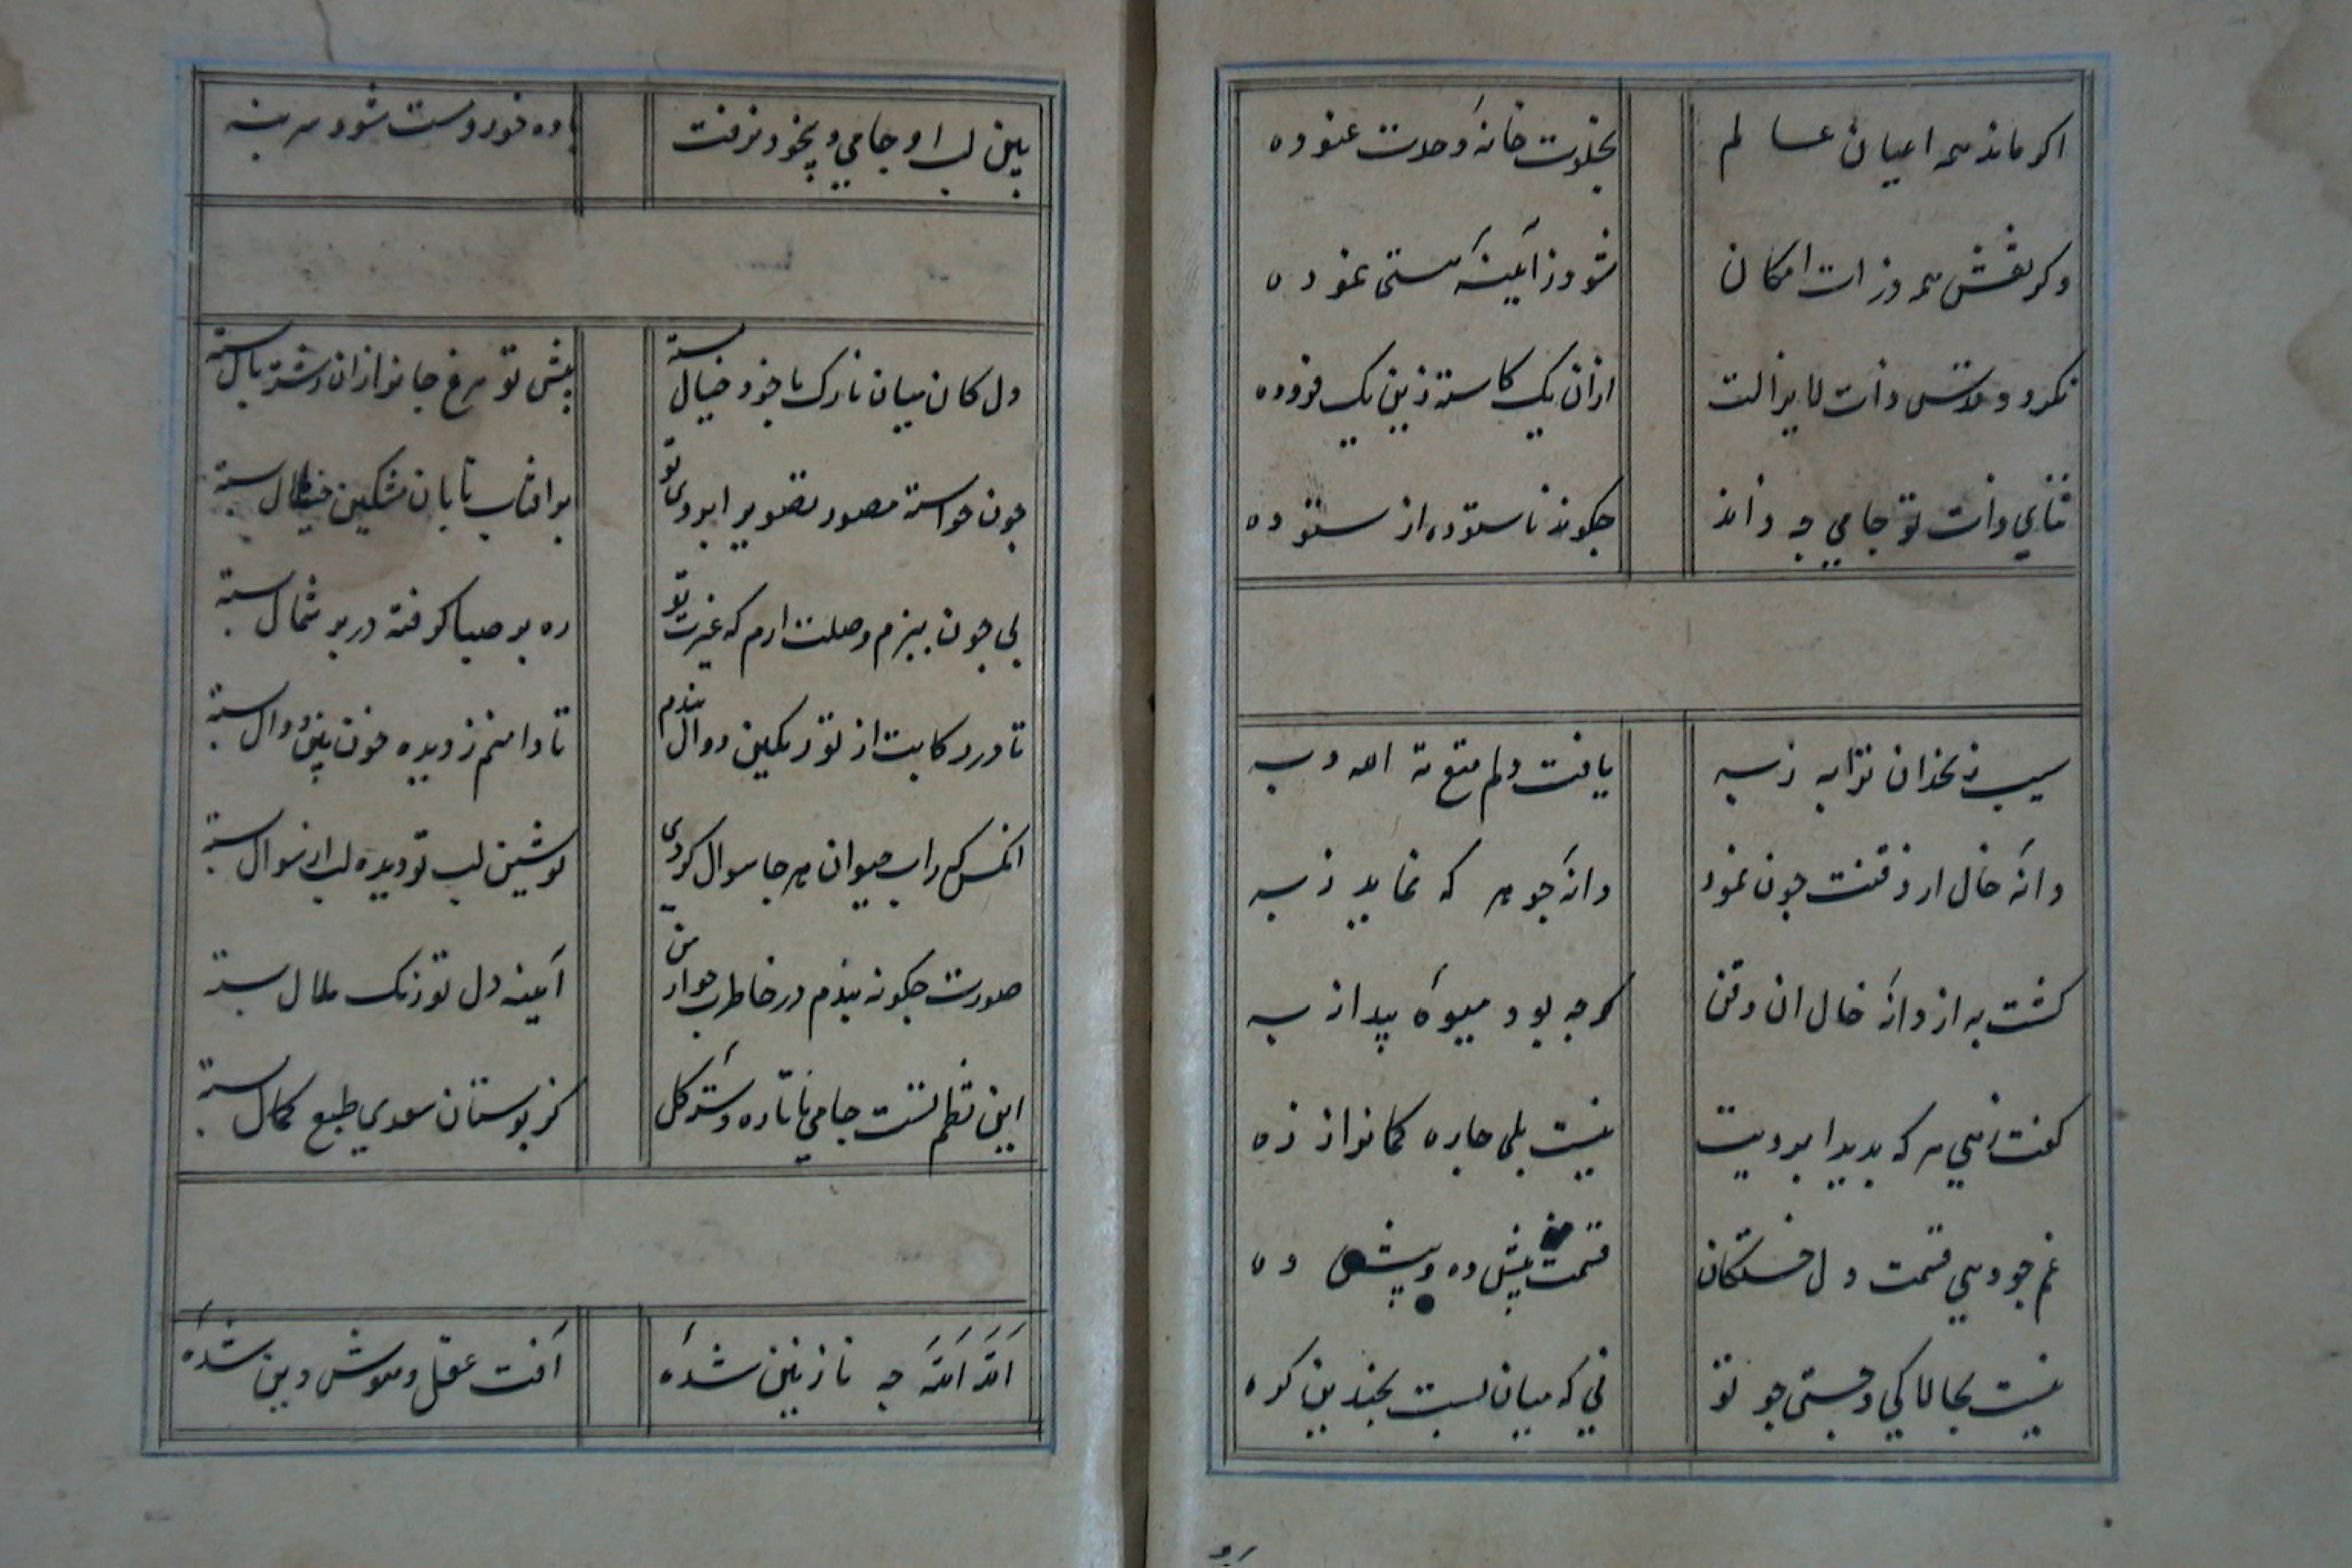 اکر ماند همه اعیان عالم بخلوت خانهٔ وحدت غنوده
وکر نقش همه ذرات امکان شود ز آیینهٔ هستی نموده
نکردد قدس ذات لایزالت ازان یک کاسته زین یک فزوده
ثنای ذات تو جامی چه داند چکوید ناستوده از ستوده
سیب زنخدان ترا به ز به یافت دلم متع ته الله به
دانهٔ خال از ذقنت چون نمود دانهٔ جوهر که نماید ز به
کشت به از دانهٔ خال ان ذقن کرچه بود میوهٔ بیدانه به
کفت زهی هرکه بدید ابرویت نیست بلی چاره کمانرا ز زه
غم چو دهی قسمت دل خستکان قسمت من بیش ده و بیش ده
نیست بچالاکی و چستی چو تو نی که میان بست بچندین کره
بین لب او جامی و بیخود مرفت باده خور و مست شو و سر بنه
دل کان میان نازک با خود خیال بسته پیش تو مرغ جانرا زان رشته بال بسته
چون خواسته مصور تصویر ابروی تو بر افتاب تابان مشکین هلال بسته
بی چون ببزم وصلت ارم که غیرت تو ره بر صبا کرفته در بر شمال بسته
تا در رکابت از تو رنکین دوال بندم تا دامنم ز دیده خون بین دوال بسته
انکس که زاب حیوان هر جا سوال کردی نوشین لب تو دیده لب از سوال بسته
صورت چکونه بندم در خاطرت جواز من آیینه دل تو زنک ملال بسته
این نظم نیست جامی تازه دستهٔ کل کز بوستان سعدی طبع کمال بسته
الله الله چه نازنین شدهٔ آفت عقل و هوش و دین شدهٔ